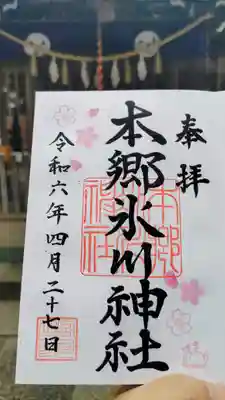 奉拝
本郷氷川神社
令和六年四月二十七日